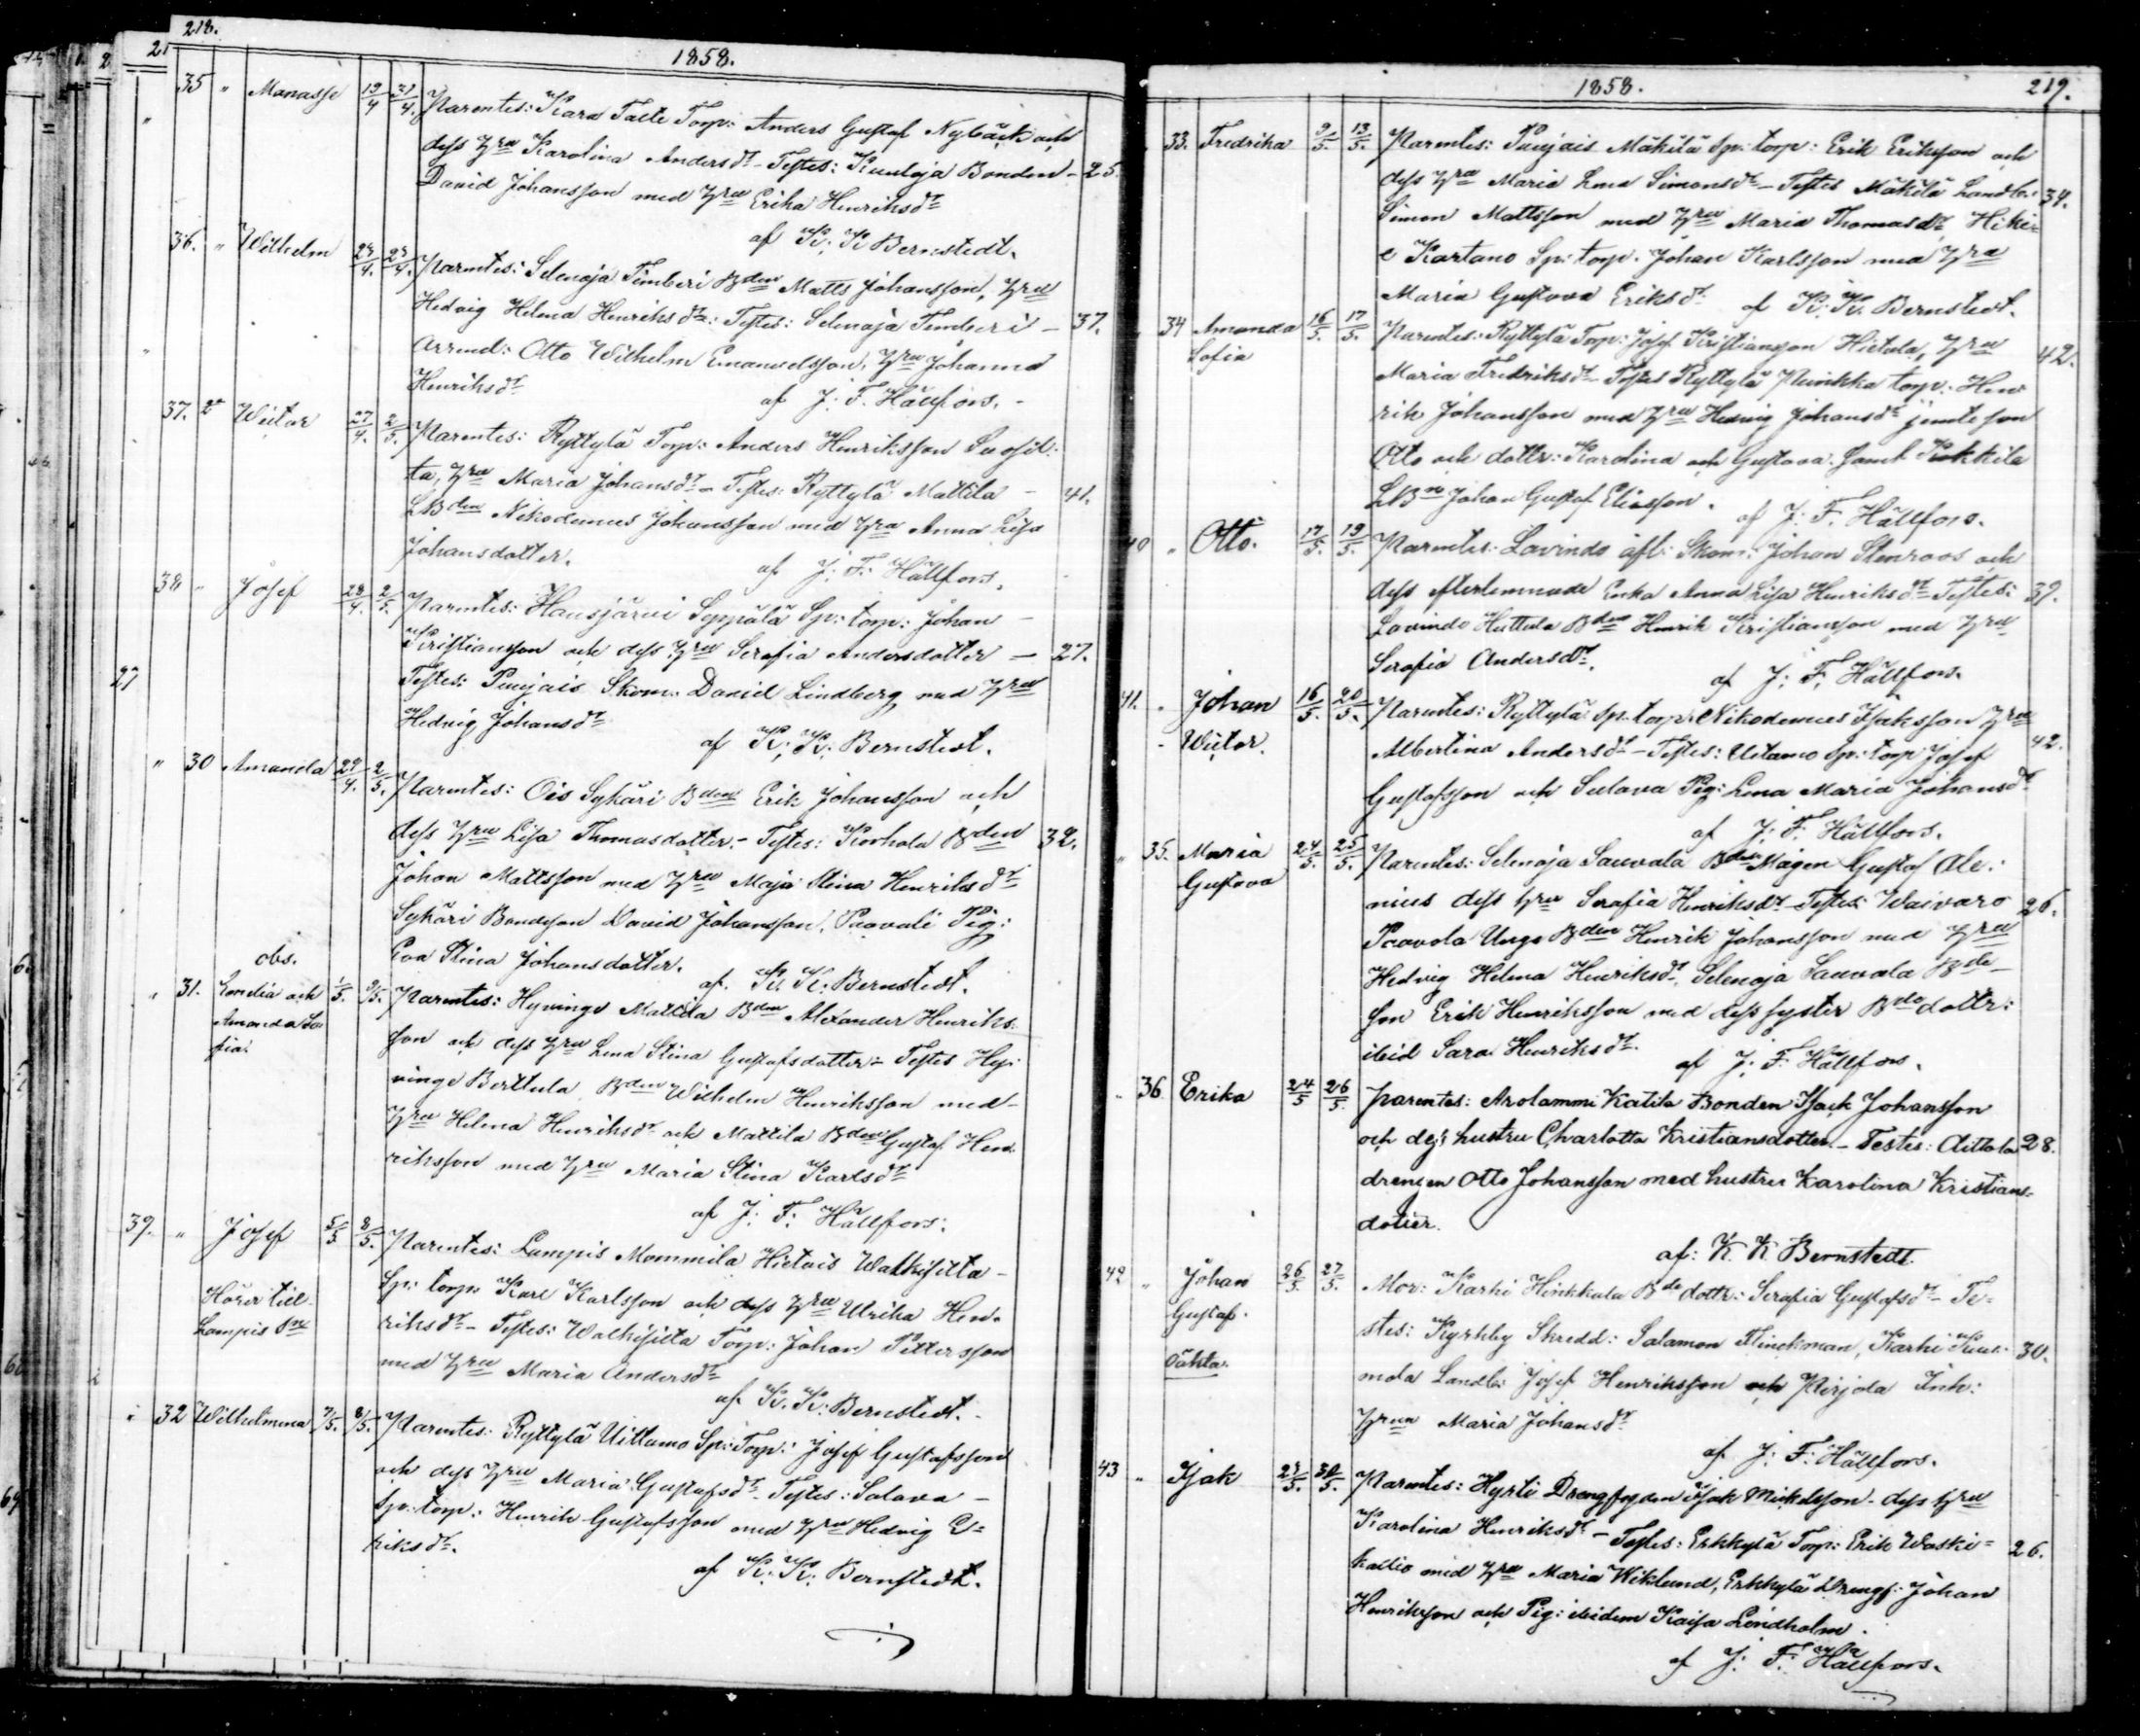 218.
1858.
35 " Manasse 19/4 31/4. Parentes: Kara Talte Torp: Anders Gustaf Nybäck och
dess Hru Karolina Andersdr - Testes: Kuuloja Bonden - 25.
David Johansson med Hru Erika Henriksdr
af K: K Bernstedt.
36. " Wilhelm 24/4. 25/4. Parentes: Selenoja Timberi Bden Matts Johansson, Hru
Hedvig Helena Henriksdr: Testes: Selenoja Timberi - 37.
Arrend: Otto Wilhelm Emanuelsson, Hru Johanna
Henriksdr af J: F. Hällfors. -
37. 2r Wictor 27/4. 2/5. Parentes: Ryttylä Torp: Anders Henriksson Suosil:
ta, Hru Maria Johansdr - Testes: Ryttylä Mattila - 41.
LBden Nikodemus Johansson med Hru Anna Lisa
Johansdotter. af J: F: Hällfors.
38 " Josef 28/4. 2/5. Parentes: Hausjärvi Seppälä Sp: torp: Johan -
Kristiansson och dess Hru Serafia Andersdotter - 27.
27
Testes: Puujais Skom: David Lindberg med Hru
Hedvig Johansdr
af K: K: Bernstedt.
" 30 Amanda 29/4. 2/5. Parentes: Ois Sykäri Bden Erik Johansson och
dess Hru Lisa Thomasdotter. - Testes: Korhola Bden 32.
Johan Mattsson med Hru Maja Stina Henriksdr
Sykäri Bondeson David Johansson, Paavali Pig:
Eva Stina Johansdotter.
af K: K: Bernstedt.
obs.
" 31. Emelia och 1/5. 9/5. Parentes: Hyvinge Mattila Bden Alexander Henriks
Amanda So
fia.
son och dess Hru Lena Stina Gustafsdotter - Testes Hy:
vinge Berttula Bden Wilhelm Henriksson med -
Hru Helena Henriksdr och Mattila Bden Gustaf Hen
riksson med Hru Maria Stina Karlsdr
af J: F: Hällfors.
39. " Josef 5/5 8/5. Parentes: Lampis Mommila Hietois Walkisilta -
Sp: torp: Karl Karlsson och dess Hru Ulrika Hen-
Hörer till
Lampis
riksdr - Testes: Walkisilta Torp: Johan Pettersson
med Hru Maria Andersdr
af K. K: Bernstedt. -
32 Wilhelmina 7/5. 8/5. Parentes: Ryttylä Uittamo Sp: Torp: Josef Gustafsson
och dess Hru Maria Gustafsdr - Testes: Solava -
Sp: torp: Henrik Gustafsson med Hru Hedvig E=
riksdr.
af K: K: Bernstedt.
1858. 219.
33. Fredrika 9/5. 13/5. Parentes: Puujais Mäkilä Sp: torp: Erik Eriksson och
dess Hru Maria Lena Simonsdr - Testes Mäkilä Landb: 34.
Simon Mattsson med Hru Maria Thomasdr, Hiki=
e Kartano Sp: torp. Johan Karlsson med Hru
Maria Gustova Eriksdr af K: K. Bernstedt.
34 Amanda 16/5. 17/5. Parentes: Ryttylä Torp: Josef Kristiansson Hietala, Hru
Sofia
42.
Maria Fredriksdr - Testes Ryttylä Puukka torp: Hen
rik Johansson med Hru Hedvig Johansdr jemte son
Otto och dottr: Karolina och Gustava. Samt Kokkila
LBn Johan Gustaf Eliasson. af J: F. Hällfors.
40 " Otto. 17/5. 19/5. Parentes: Lavindo afl: Skom: Johan Stenroos och
dess efterlemnade Enka Anna Lisa Henriksdr Testes: 39.
Lavinde Huttula Bden Henrik Kristiansson med Hru
Serafia Andersdr.
af J: F. Hällfors.
41. " Johan 16/5. 20/5. Parentes: Ryttylä Sp. torp: Nikodemus Isaksson Hru
- Wictor.
Albertina Andersdr - Testes: Uitamo Sp: torp Josef 42.
Gustafsson och Sulava Pig: Lena Maria Johansdr
af J: F: Hällfors.
" 35. Maria 24/5. 25/5. Parentes: Selenoja Sauvala Bde Mågen Gustaf Ale:
Gustova
nius dess hru Serafia Henriksdr - Testes: Waivaro 26.
Paavola Unge Bden Henrik Johansson med Hru
Hedvig Helena Henriksdr, Selenoja Sauvala Bde -
son Erik Henriksson med dess syster Bde dottr:
ibid Sara Henriksdr.
af J: F. Hällfors.
" 36 Erika 24/5 26/5. Parentes: Arolammi Katila Bonden Isack Johansson
och dess hustru Charlotta Kristiansdotter. - Testes: Aittola 28.
drengen Otto Johansson med hustru Karolina Kristians-
dotter.
af: K. K Bernstedt.
42 " Johan 26/5. 27/5. Mor: Karhi Hinkkala Bde dottr: Serafia Gustafsdr - Te=
Gustaf.
oäkta.
stes: Kyrkby Skredd: Salamon Flinckman, Karhi 30.
mola Landb: Josef Henriksson och Pirjola Inh:
Hrun Maria Johansdr
af J: F: Hällfors.
43 " Isak 29/5. 30/5. Parentes: Hyrli Drengfogden Isak Mickelsson - dess hru
Karolina Henriksdr - Testes: Erkkylä Torp: Erik Waski= 26.
kallio med Hru Maria Wiklund, Erkkylä Drengf: Johan
Henriksson och Pig: ibidem Kaisa Lindholm.
af J: F. Hällfors.